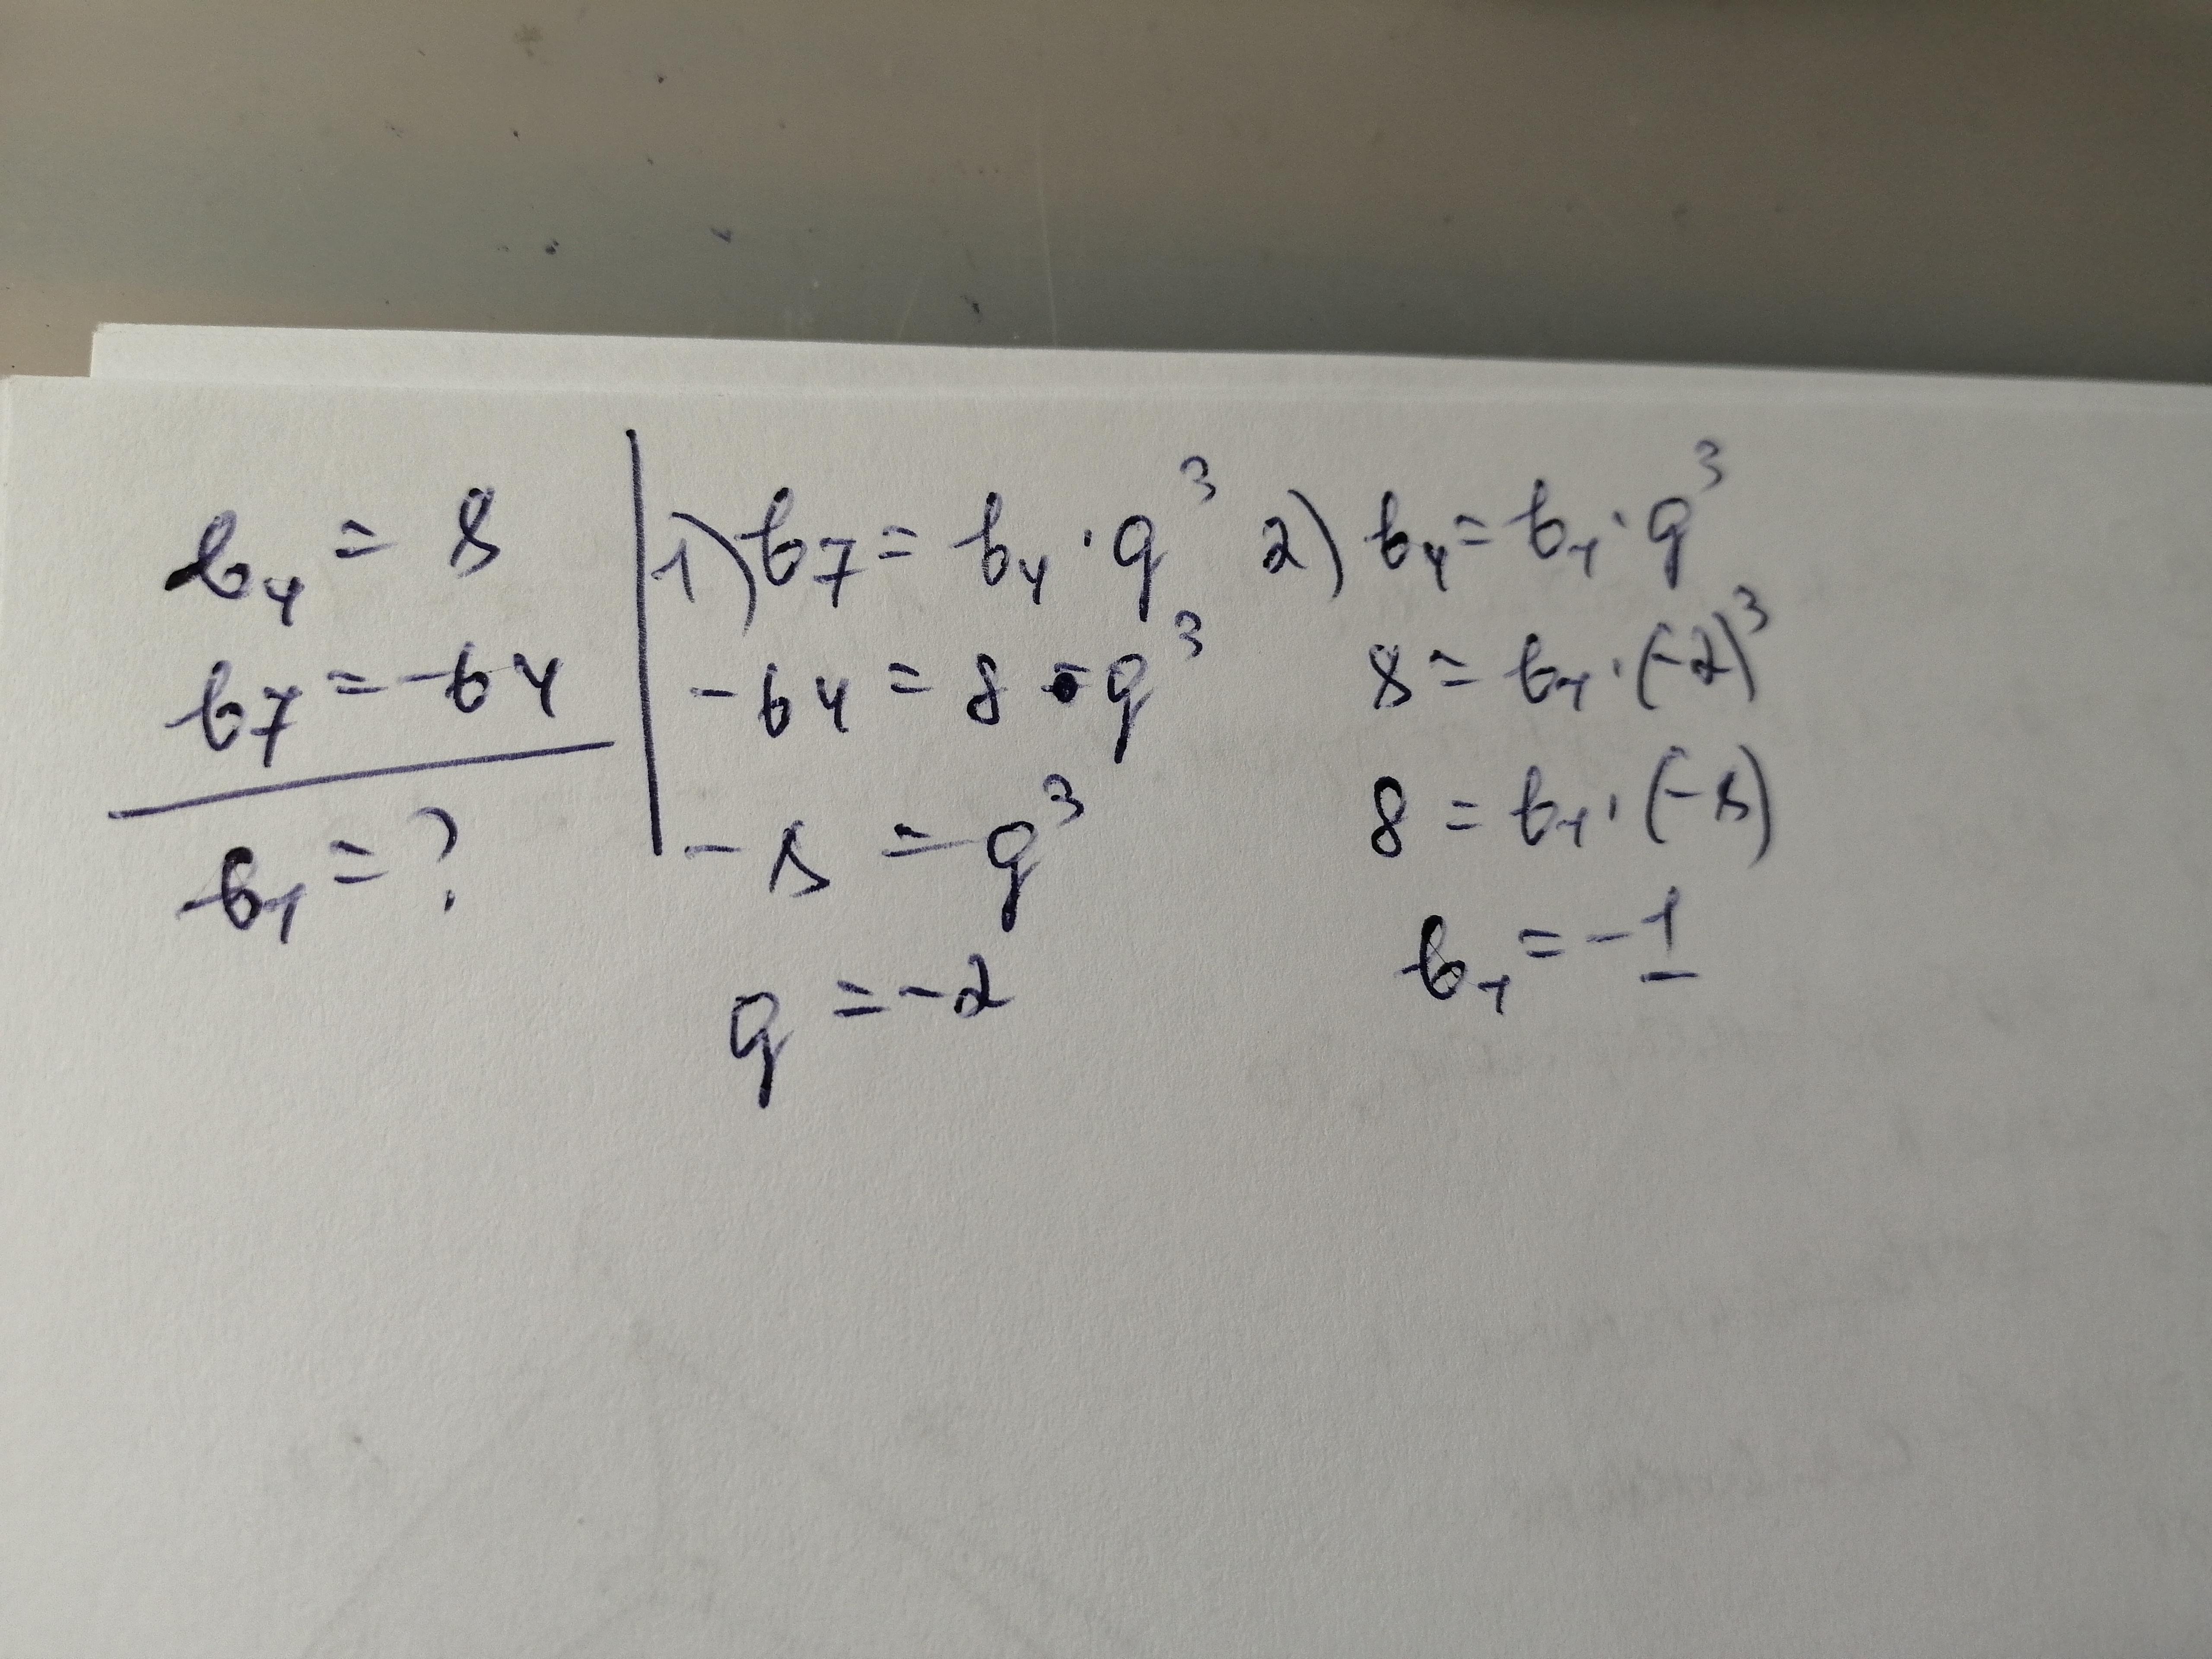 b₄ = 8
b₇ = -64
b₁ = ?
1) b₇ = b₄ · q³
-64 = 8 · q³
-8 = q³
q = -2
2) b₄ = b₁ · q³
8 = b₁ · (-2)³
8 = b₁ · (-8)
b₁ = -1